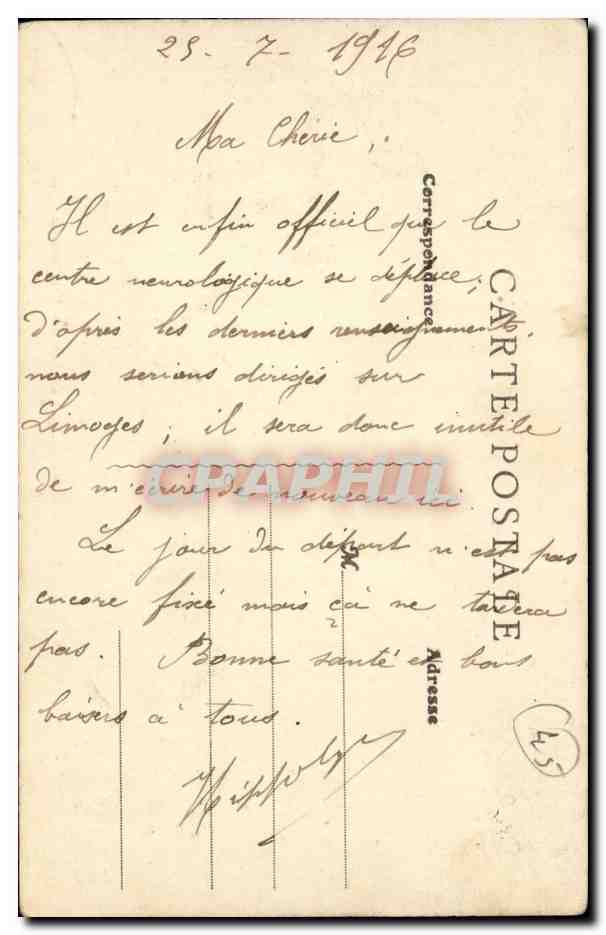 25-7-1916
Ma Chérie,.
Il est enfin officiel que le
centre neurologique se déplace;
d'après les derniers renseignements,
nous serions dirigés sur
Limoges; il sera donc inutile
de m'écrire de nouveau ici
Le jour du départ n'est pas
encore fixé mais çà ne tardera
pas. Bonne santé et bons
baisers à tous.
Hippolyte
CARTE POSTALE
Correspondance
Adresse
M
CPAPHIL
45